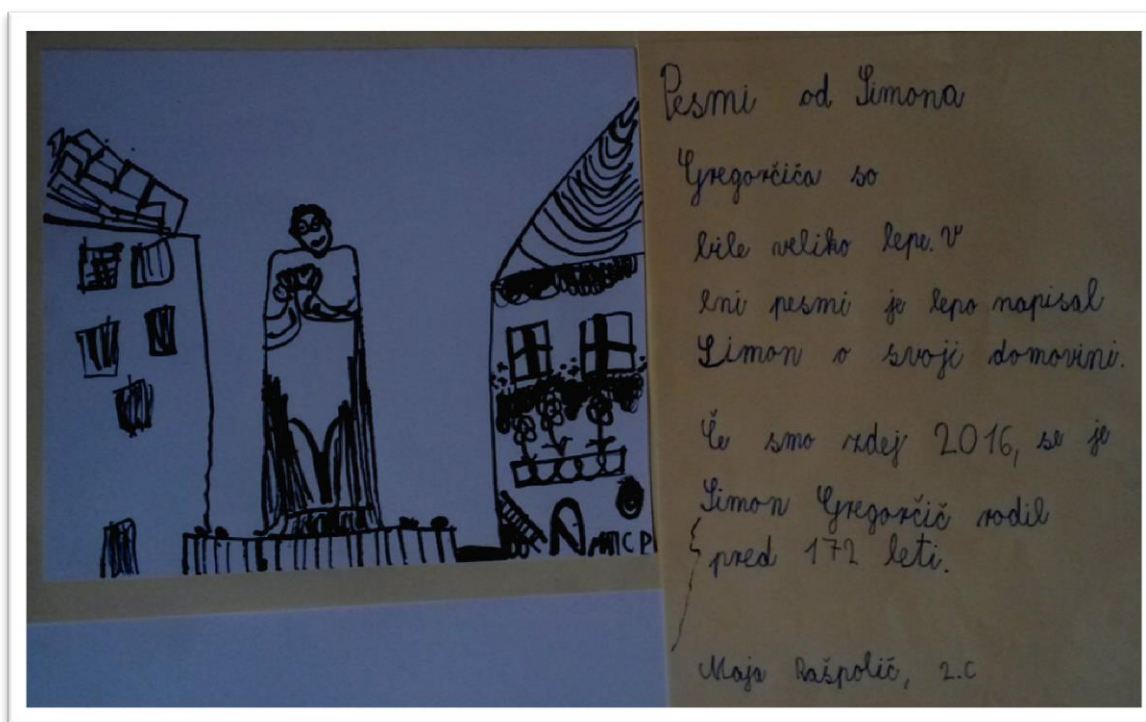 Pesmi od Simona
Gregorčiča so
bile veliko lepe. V
eni pesmi je lepo napisal
Simon o svoji domovini.
Če smo zdej 2016, se je
Simon Gregorčič rodil
pred 172 leti.
Maja Rašpolič, 2.C